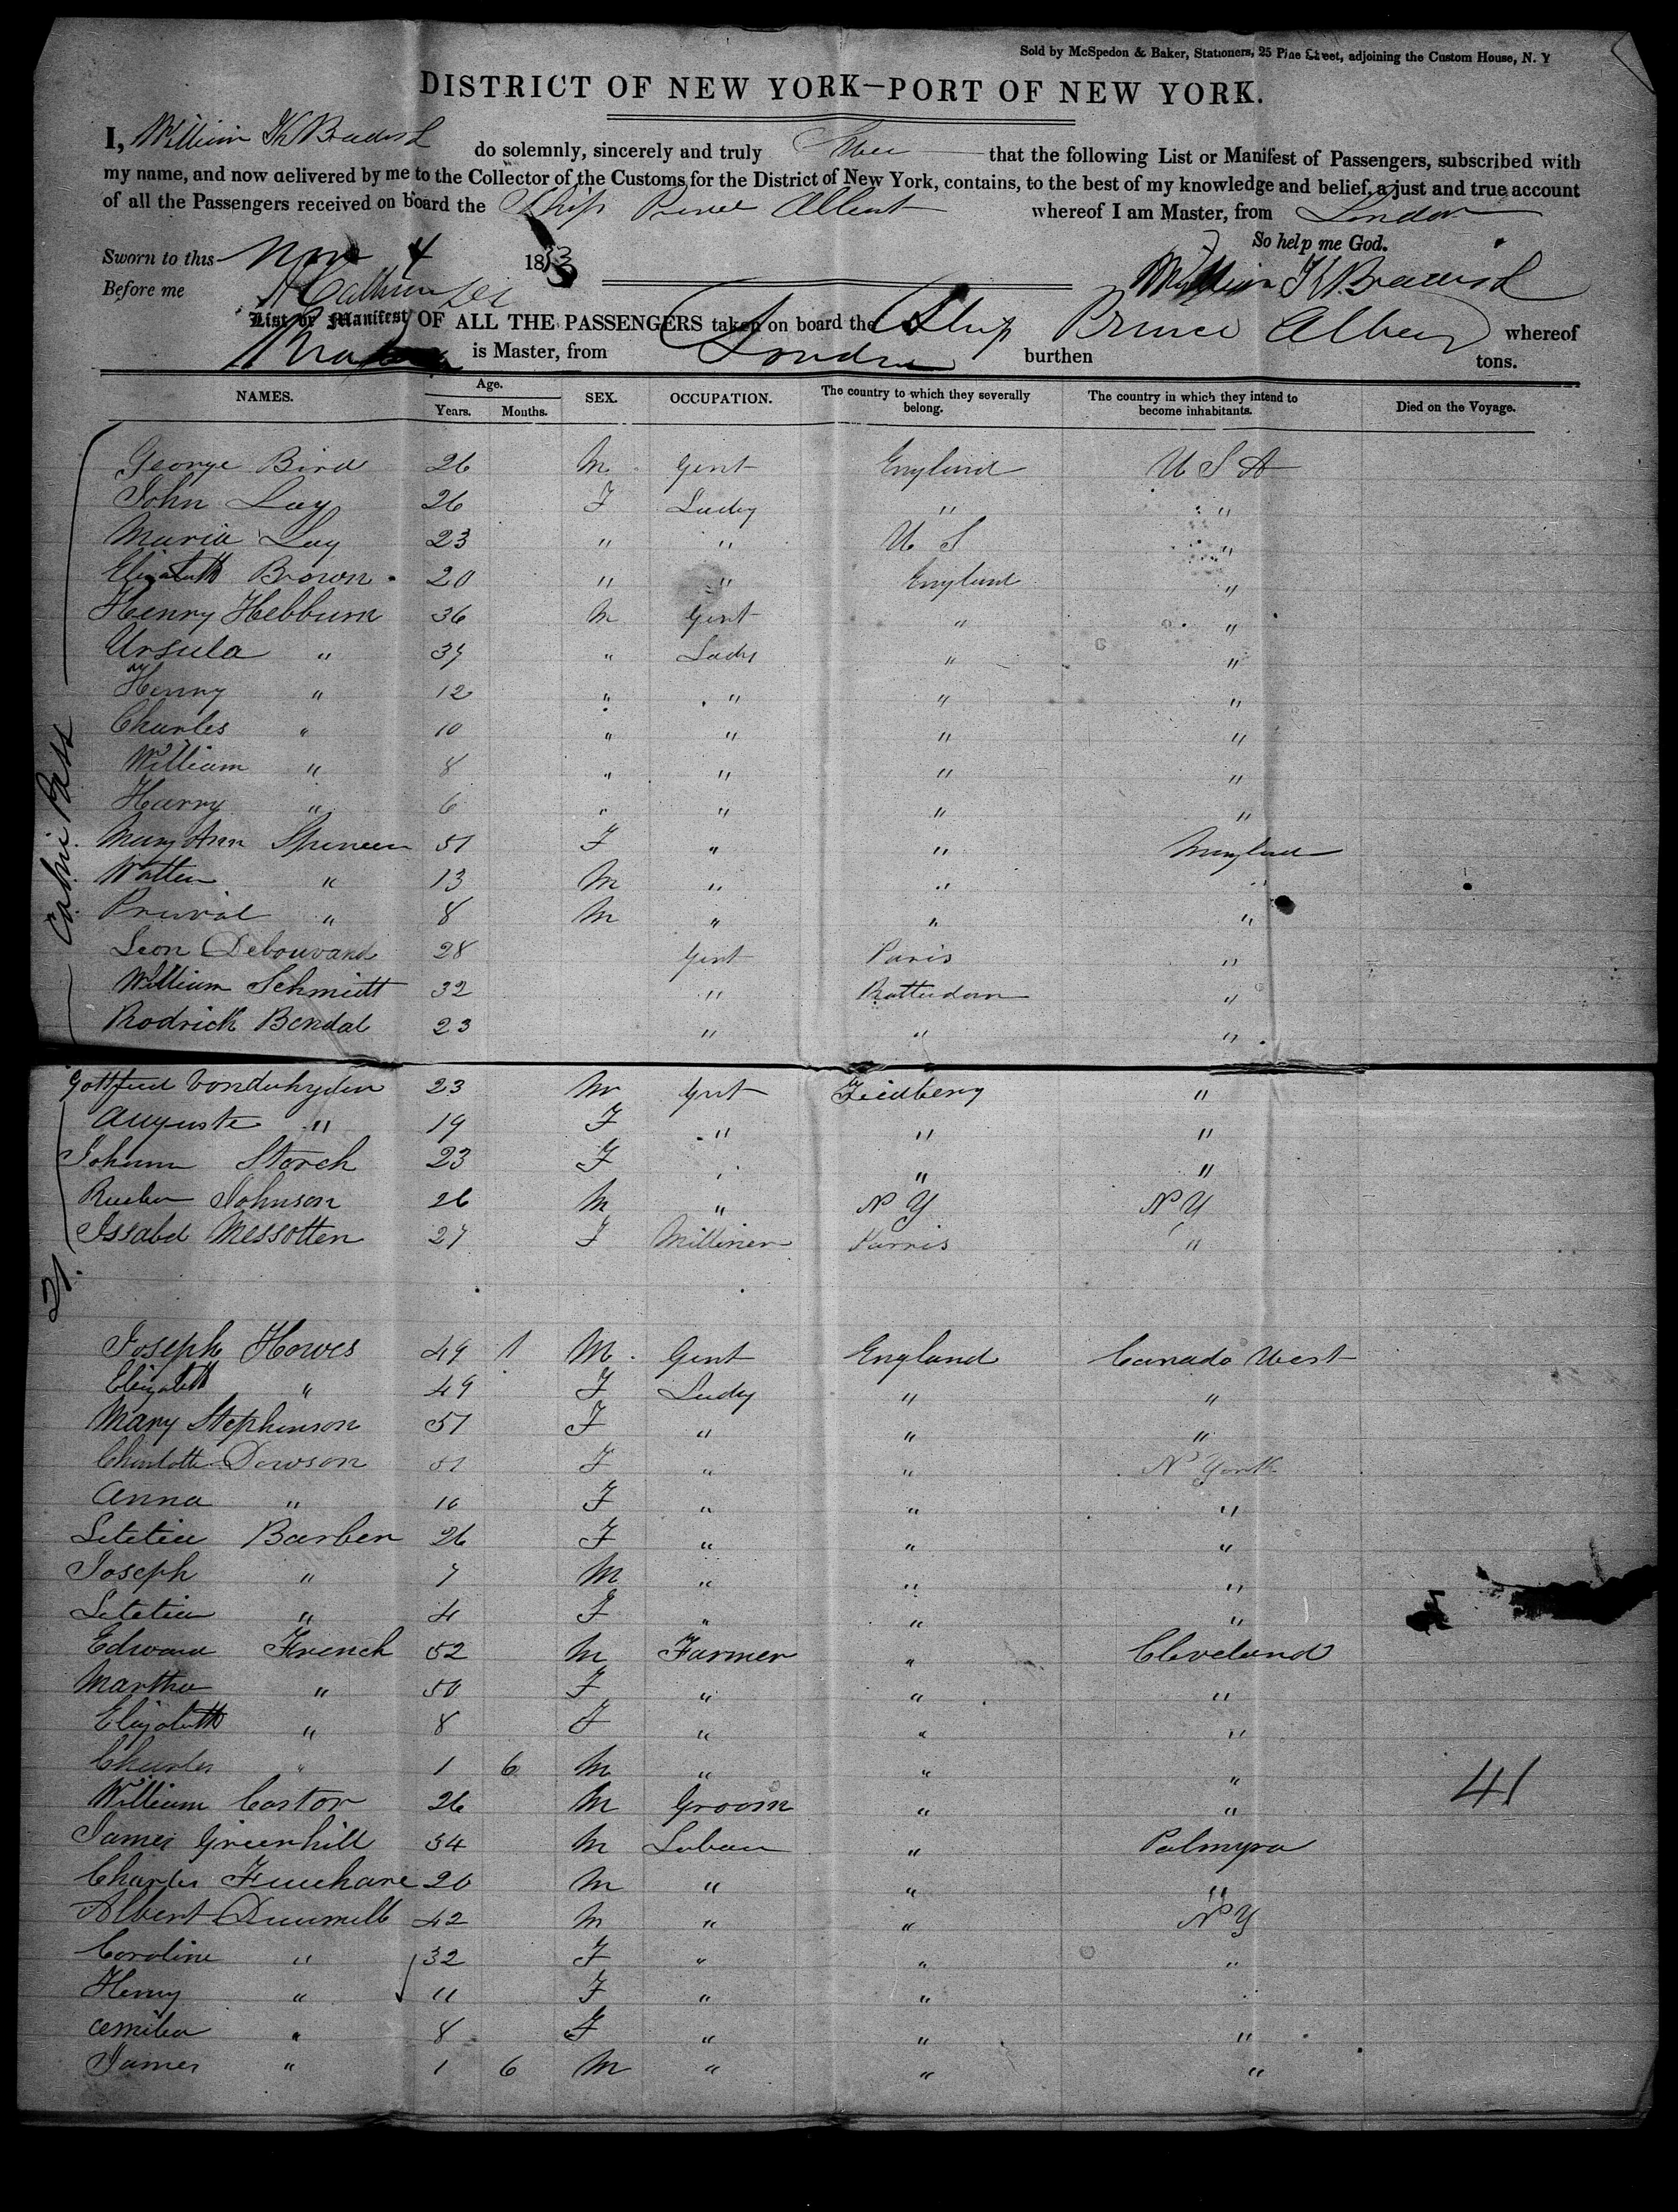 Sold by McSpedon & Baker, Stationers, 25 Pine Street, adjoining the Custom House, N. Y
DISTRICT OF NEW YORK—PORT OF NEW YORK.
I, William K Bradish do solemnly, sincerely and truly Swear that the following List or Manifest of Passengers, subscribed with
my name, and now delivered by me to the Collector of the Customs for the District of New York, contains, to the best of my knowledge and belief, a just and true account
of all the Passengers received on board the Ship Prince Albert whereof I am Master, from London
So help me God.
Sworn to this Nov 4 1853
Before me
William K Bradish
List or Manifest OF ALL THE PASSENGERS taken on board the Ship Prince Albert whereof
is Master, from London burthen tons.
NAMES. Age. Years. Months. SEX. OCCUPATION. The country to which they severally belong. The country in which they intend to become inhabitants. Died on the Voyage.
George Bird 26 M Gent England U S A
John Lay 26 F Lady " "
Maria Lay 23 " " U S "
Elizabeth Brown 20 " " England "
Henry Hebburn 36 M Gent " "
Ursula " 37 " Lady " "
Henry " 12 " " " "
Charles " 10 " " " "
William " 8 " " " "
Harry " 6 " " " "
Mary Ann Spencer 51 F " "
" 13 M " " "
" 8 M " " "
Leon Debouvand 28 Gent Paris "
William Schmidt 32 " Rotterdam "
Rodrick Bendal 23 " " "
Cabin Pass
Gottfried Vonderhyden 23 M Gent "
Auguste " 19 F " " "
Storch 23 F " " "
Johnson 26 M " N Y N Y
Issabel Messotten 27 F Milliner Parris "
21.
Joseph Howes 49 1 M Gent England Canada West
Elizabeth " 49 F Lady " "
Mary Stephenson 51 F " " "
Charlotte Dowson 51 F " " N York
Anna " 10 F " " "
Letetia Barber 26 F " " "
Joseph " 7 M " " "
Letetia " 4 F " " "
Edward French 52 M Farmer " Cleveland
Martha " 50 F " " "
Elizabeth " 8 F " " "
Charles " 1 6 M " " "
41
William Castor 26 M Groom " "
James Greenhill 34 M " Palmyra
Charles 20 M " " "
Albert 42 M " " N Y
Caroline " 32 F " " "
Henry " 11 F " " "
" 8 F " " "
James " 1 6 M " " "